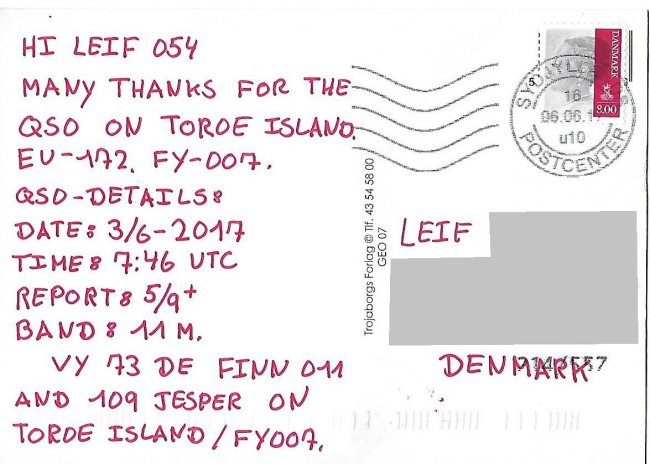 HI LEIF 054
MANY THANKS FOR THE
QSO ON TOROE ISLAND.
EU-172. FY-007.
QSO-DETAILS:
DATE: 3/6-2017
TIME: 7:46 UTC
REPORT: 5/9+
BAND: 11 M.
VY 73 DE FINN 011
AND 109 JESPER ON
TOROE ISLAND/FY007.
Trojaborgs Forlag © Tlf. 43 54 58 00
GEO 07
DANMARK
8.00
16
06.06.1
u10
POSTCENTER
LEIF
DENMARK